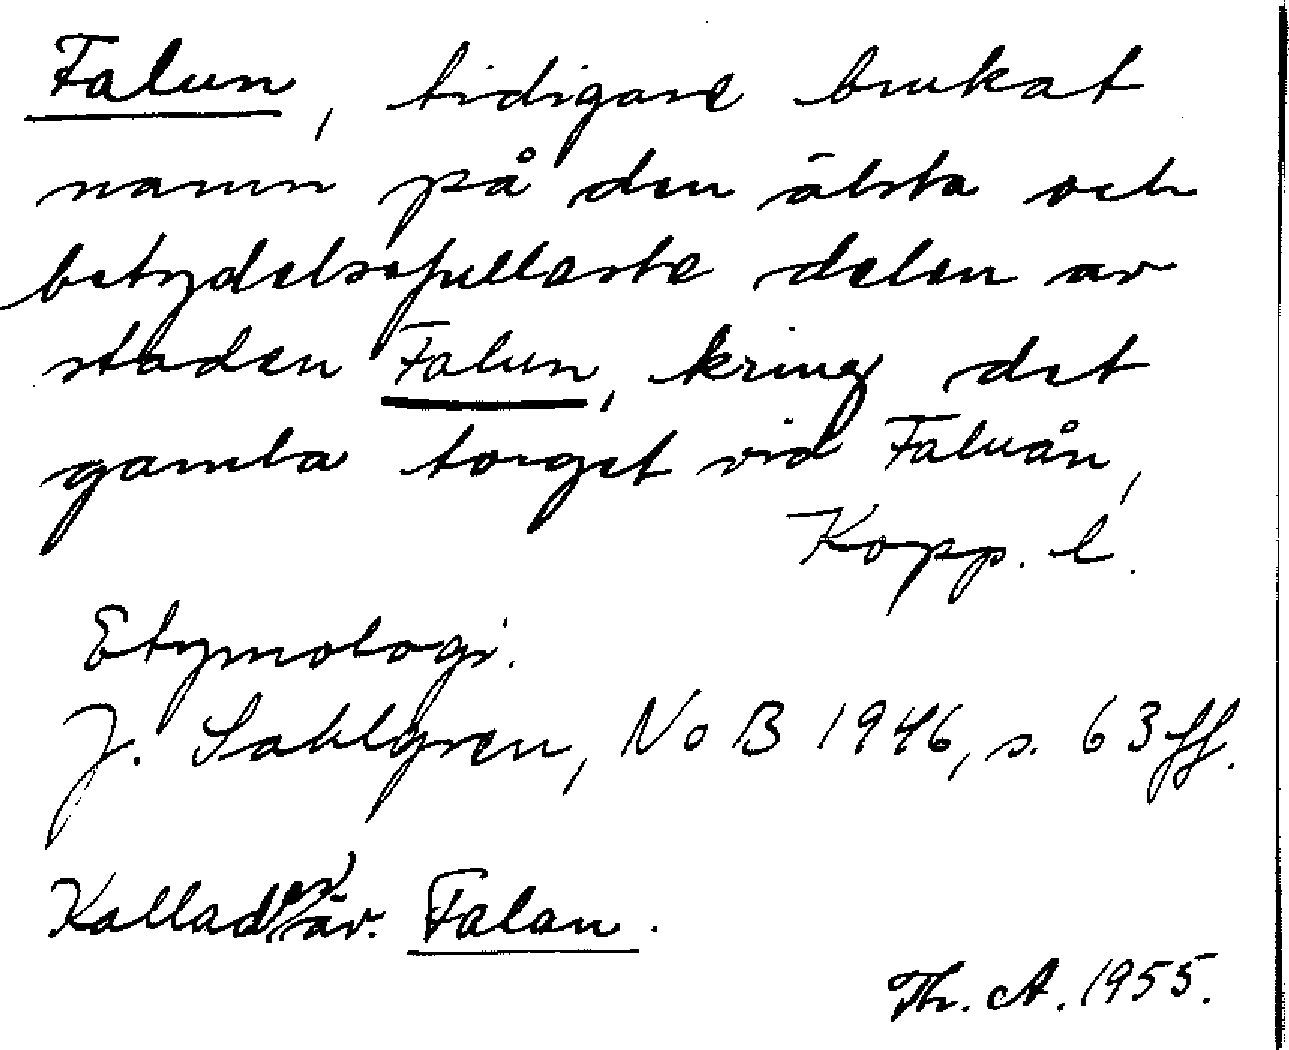 Falun, tidigare brukat
namn på den älsta och
betydelsefullaste delen av
staden Falun, kring det
gamla torget vid Faluån,
Kopp. l.
Etymologi.
J. Sahlgren, NoB 1946, s. 63 ff.
Kallad äv. Falan.
Th. A. 1955.